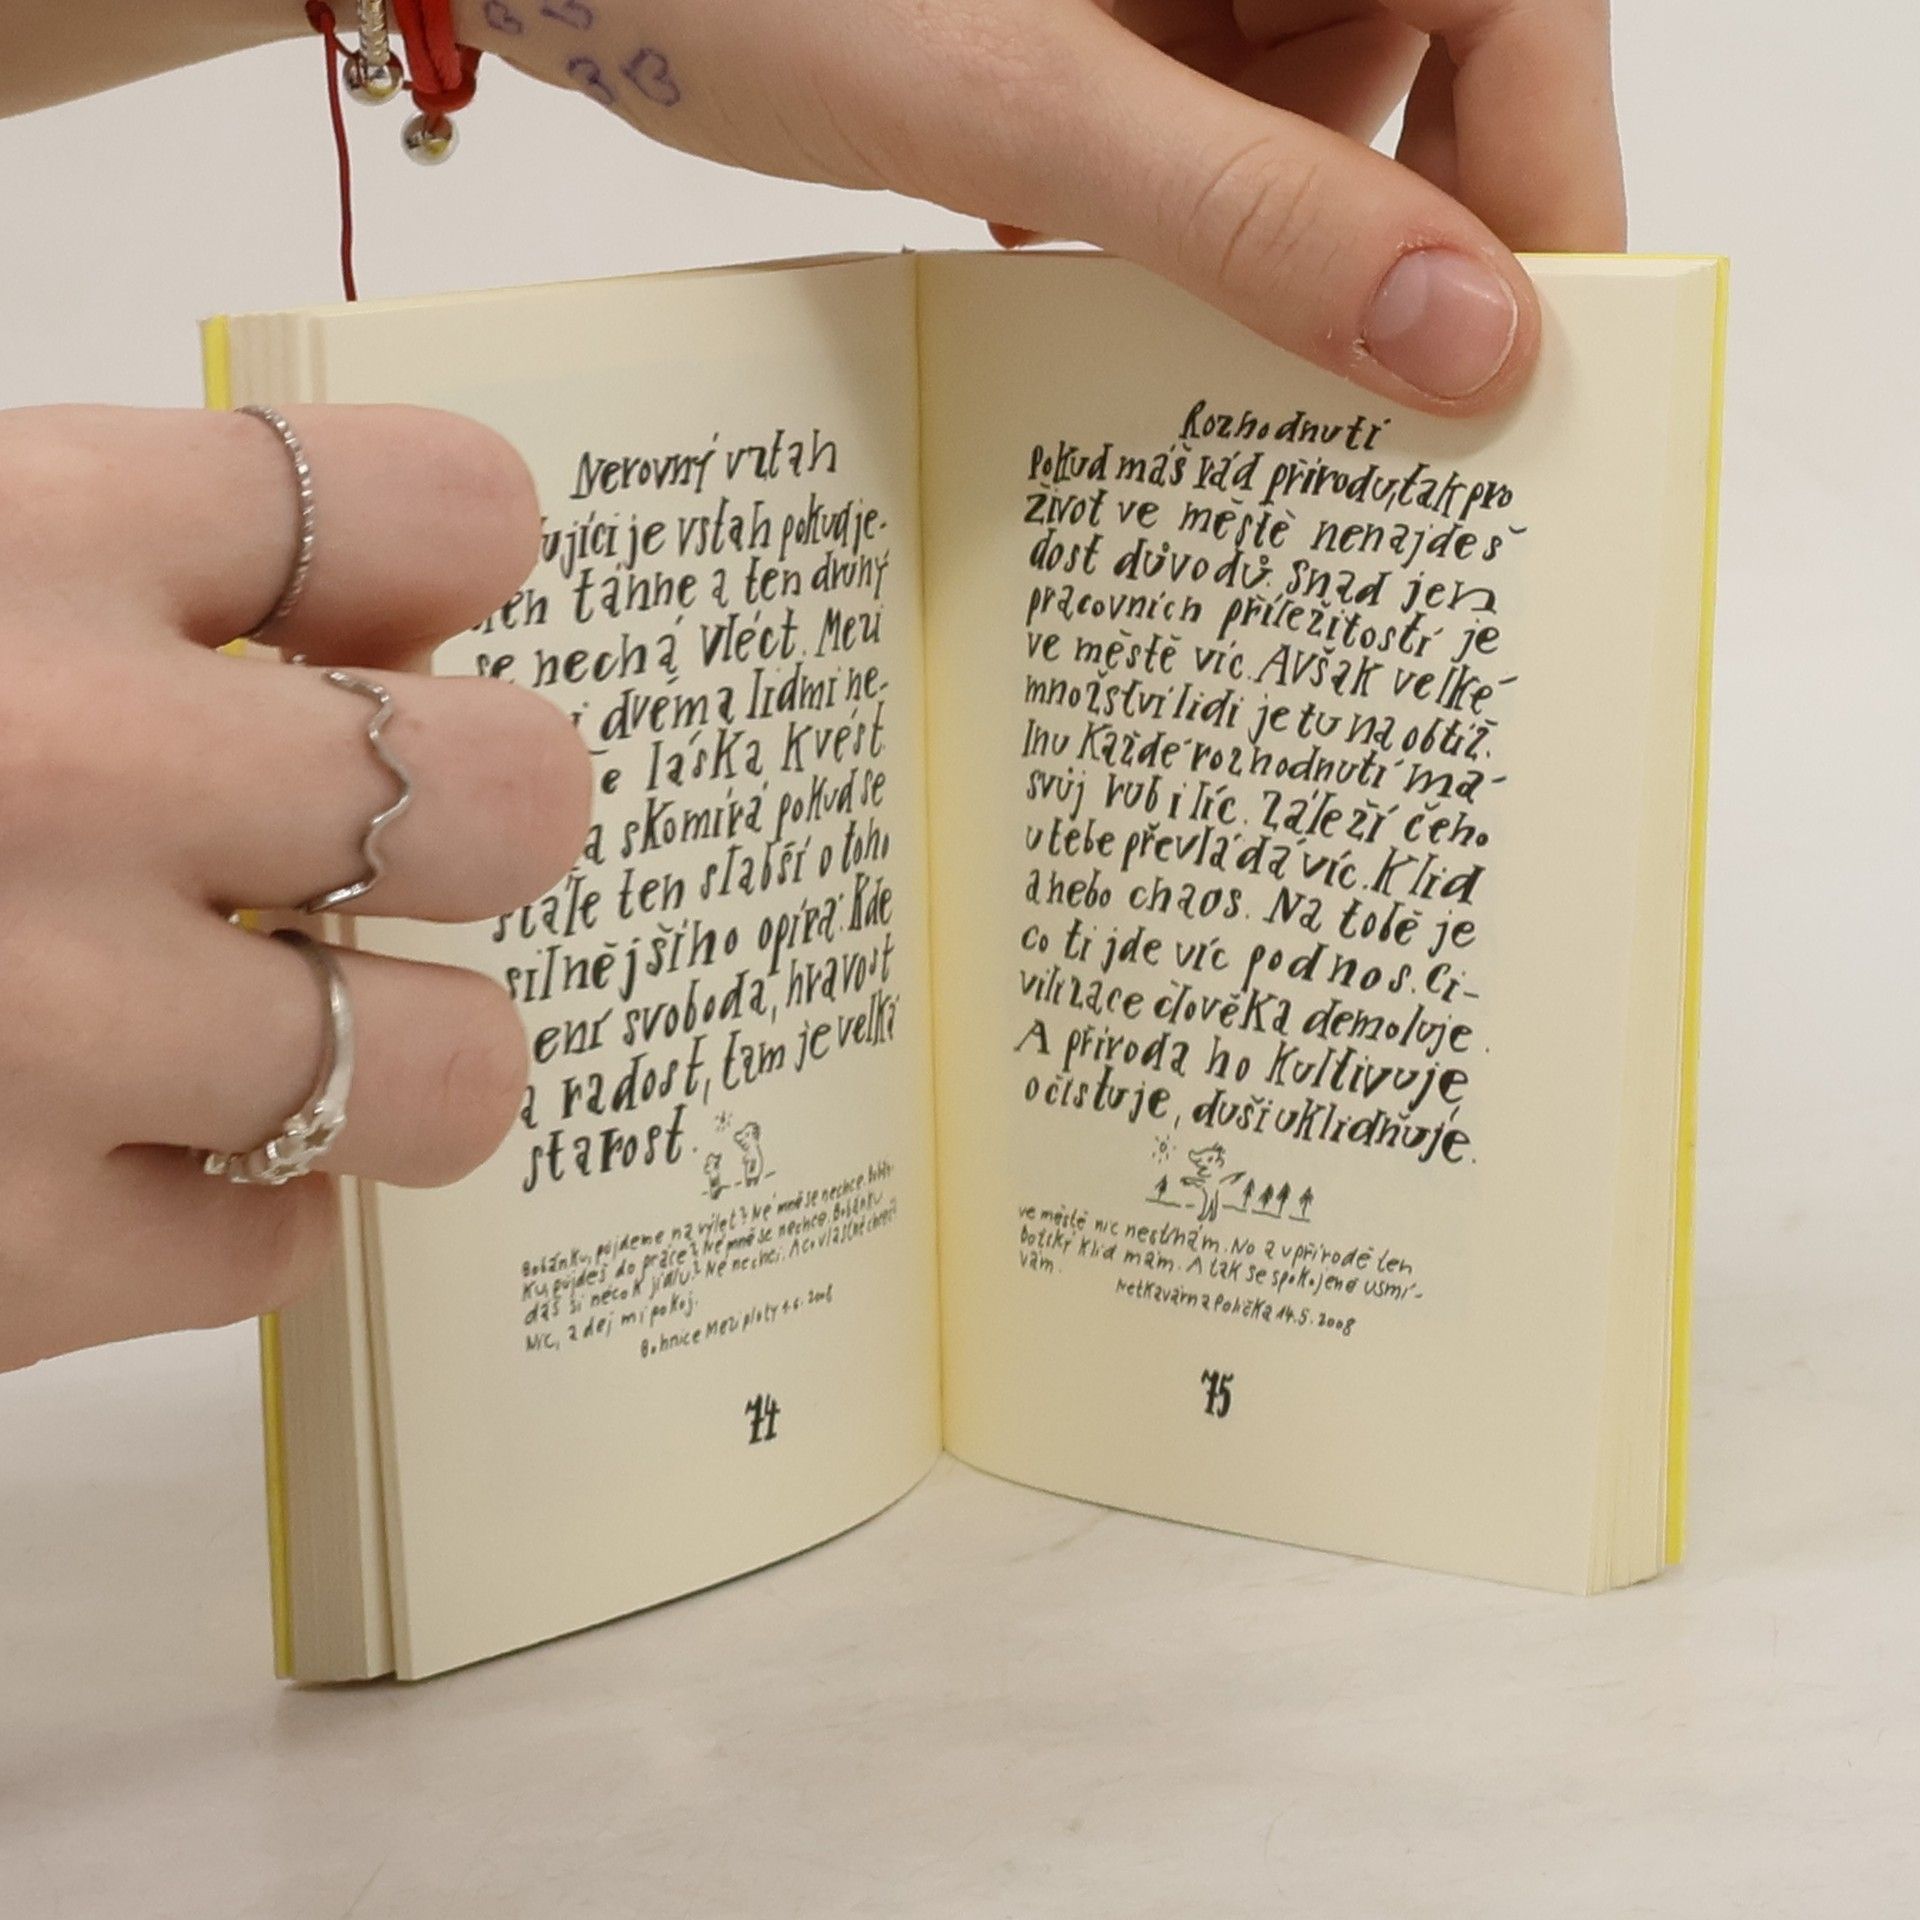 Nerovný vztah
je vstah pokud je-
táhne a ten druhý
se nechá vléct. Mezi
dvěma lidmi ne-
láska kvést
skomírá pokud se
stále ten slabší o toho
silnějšího opírá. Kde
není svoboda, hravost
a radost, tam je velká
starost.
Bobánku, půjdeme na výlet? Né mně se nechce. Bobán-
ku půjdeš do práce? Né mně se nechce. Bobánku
dáš si něco k jídlu? Né nechci. A co vlastně chceš?
Nic, a dej mi pokoj.
Bohnice Mezi ploty 1.6. 2008
74
Rozhodnutí
Pokud máš rád přírodu, tak pro
život ve městě nenajdeš
dost důvodů. Snad jen
pracovních příležitostí je
ve městě víc. Avšak velké
množství lidí je tu na obtíž.
Inu každé rozhodnutí má
svůj rub i líc. Záleží čeho
u tebe převládá víc. Klid
anebo chaos. Na tobě je
co ti jde víc pod nos. Ci-
vilizace člověka demoluje.
A příroda ho kultivuje
očistuje, duši uklidňuje.
ve městě nic nestíhám. No a v přírodě ten
božský klid mám. A tak se spokojeně usmí-
vám.
Netkavárna Polička 14.5.2008
75